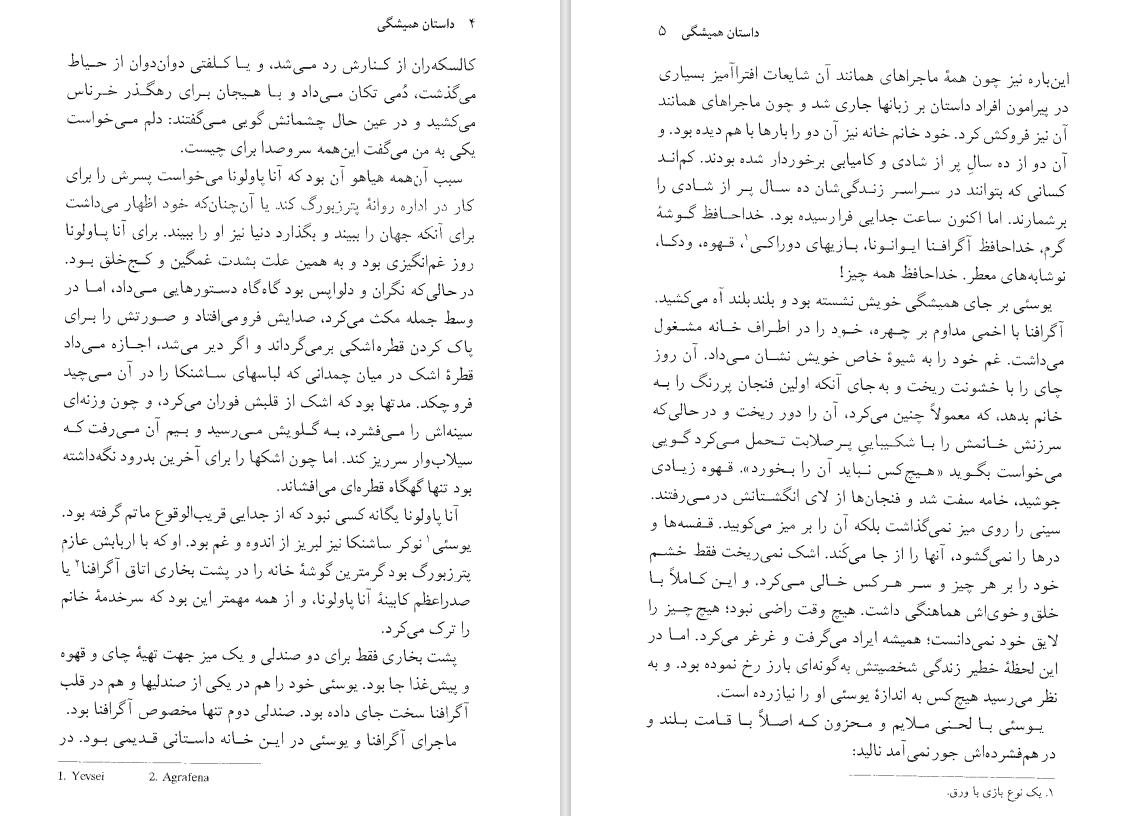 ۴ داستان همیشگی
کالسکه‌ران از کنارش رد می‌شد، و یا کلفتی دوان‌دوان از حیاط
می‌گذشت، دُمی تکان می‌داد و با هیجان برای رهگذر خرناس
می‌کشید و در عین حال چشمانش گویی می‌گفتند: دلم می‌خواست
یکی به من می‌گفت این‌همه سروصدا برای چیست.
سبب آن‌همه هیاهو آن بود که آنا پاولونا می‌خواست پسرش را برای
کار در اداره روانهٔ پترزبورگ کند یا آن‌چنان‌که خود اظهار می‌داشت
برای آنکه جهان را ببیند و بگذارد دنیا نیز او را ببیند. برای آنا پاولونا
روز غم‌انگیزی بود و به همین علت بشدت غمگین و کج‌خلق بود.
در حالی‌که نگران و دلواپس بود گاه‌گاه دستورهایی می‌داد، اما در
وسط جمله مکث می‌کرد، صدایش فرومی‌افتاد و صورتش را برای
پاک کردن قطره‌اشکی برمی‌گرداند و اگر دیر می‌شد، اجازه می‌داد
قطرهٔ اشک در میان چمدانی که لباسهای ساشنکا را در آن می‌چید
فرو چکد. مدتها بود که اشک از قلبش فوران می‌کرد، و چون وزنه‌ای
سینه‌اش را می‌فشرد، به گلویش می‌رسید و بیم آن می‌رفت که
سیلاب‌وار سرریز کند. اما چون اشکها را برای آخرین بدرود نگه‌داشته
بود تنها گهگاه قطره‌ای می‌افشاند.
آنا پاولونا یگانه کسی نبود که از جدایی قریب‌الوقوع ماتم گرفته بود.
یوسئی۱ نوکر ساشنکا نیز لبریز از اندوه و غم بود. او که با اربابش عازم
پترزبورگ بود گرمترین گوشهٔ خانه را در پشت بخاری اتاق آگرافنا۲ یا
صدراعظم کابینهٔ آنا پاولونا، و از همه مهمتر این بود که سرخدمهٔ خانم
را ترک می‌کرد.
پشت بخاری فقط برای دو صندلی و یک میز جهت تهیهٔ چای و قهوه
و پیش‌غذا جا بود. یوسئی خود را هم در یکی از صندلیها و هم در قلب
آگرافنا سخت جای داده بود. صندلی دوم تنها مخصوص آگرافنا بود.
ماجرای آگرافنا و یوسئی در این خانه داستانی قدیمی بود. در
1. Yevsei 2. Agrafena
داستان همیشگی ۵
این‌باره نیز چون همهٔ ماجراهای همانند آن شایعات افتراآمیز بسیاری
در پیرامون افراد داستان بر زبانها جاری شد و چون ماجراهای همانند
آن نیز فروکش کرد. خود خانم خانه نیز آن دو را بارها با هم دیده بود. و
آن دو از ده سالِ پر از شادی و کامیابی برخوردار شده بودند. کم‌اند
کسانی که بتوانند در سراسر زندگی‌شان ده سال پر از شادی را
برشمارند. اما اکنون ساعت جدایی فرا رسیده بود. خداحافظ گوشهٔ
گرم، خداحافظ آگرافنا ایوانونا، بازیهای دوراکی۱، قهوه، ودکا،
نوشابه‌های معطر. خداحافظ همه چیز!
یوسئی بر جای همیشگی خویش نشسته بود و بلندبلند آه می‌کشید.
آگرافنا با اخمی مداوم بر چهره، خود را در اطراف خانه مشغول
می‌داشت. غم خود را به شیوهٔ خاص خویش نشان می‌داد. آن روز
چای را با خشونت ریخت و به‌جای آنکه اولین فنجان پررنگ را به
خانم بدهد، که معمولاً چنین می‌کرد، آن را دور ریخت و در حالی‌که
سرزنش خانمش را با شکیبایی پرصلابت تحمل می‌کرد گویی
می‌خواست بگوید «هیچ‌کس نباید آن را بخورد». قهوه زیادی
جوشید، خامه سفت شد و فنجان‌ها از لای انگشتانش درمی‌رفتند.
سینی را روی میز نمی‌گذاشت بلکه آن را بر میز می‌کوبید. قفسه‌ها و
درها را نمی‌گشود، آنها را از جا می‌کَند. اشک نمی‌ریخت فقط خشم
خود را بر هر چیز و سر هرکس خالی می‌کرد. و این کاملاً با
خلق و خوی‌اش هماهنگی داشت. هیچ وقت راضی نبود؛ هیچ چیز را
لایق خود نمی‌دانست؛ همیشه ایراد می‌گرفت و غرغر می‌کرد. اما در
این لحظهٔ خطیر زندگی شخصیتش به‌گونه‌ای بارز رخ نموده بود. و به
نظر می‌رسید هیچ‌کس به اندازهٔ یوسئی او را نیازرده است.
یوسئی با لحنی ملایم و محزون که اصلاً با قامت بلند و
در هم‌فشرده‌اش جور نمی‌آمد نالید:
۱. یک نوع بازی با ورق.